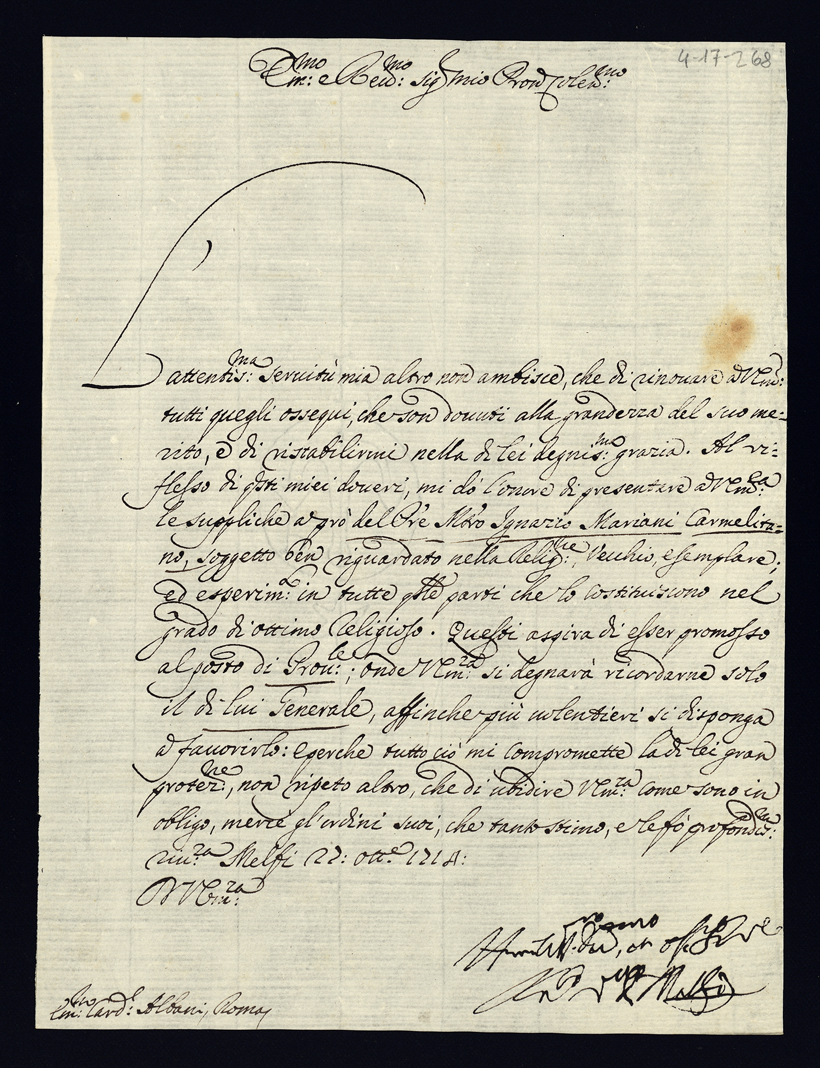 4-17-268
Em:mo e Reu:mo Sig mio Pron Colen:mo
L'attentis:ma seruitù mia altro non ambisce, che di rinouare a V Em:
tutti quegli ossequi, che son douuti alla grandezza del suo me-
rito, e di ristabilirmi nella di lei degnis:ma grazia. Al ri-
flesso di qsti miei doueri, mi dò l'onore di presentare a V Em:za
le suppliche a prò del Pre Mro Ignazio Mariani Carmelita-
no, soggetto ben riguardato nella Relig:ne, Vecchio, esemplare;
ed esperim:to in tutte qlle parti che lo costituiscono nel
grado di ottimo Religioso. Questi aspira di esser promosso
al posto di Prou:le; onde V Em:za si degnarà ricordarne solo
il di lui Generale, affinche più uolentieri si disponga
a fauorirlo: e perche tutto ciò mi compromette la di lei gran
protez:ne, non ripeto altro, che di ubidire V Em:za come sono in
obligo, mercè gl'ordini suoi, che tanto stimo, e le fò profondis:ma
riu:za Melfi 27: ott:e 1714:
D V Em:za
Melfi
Em:mo Card:l Albani, Roma